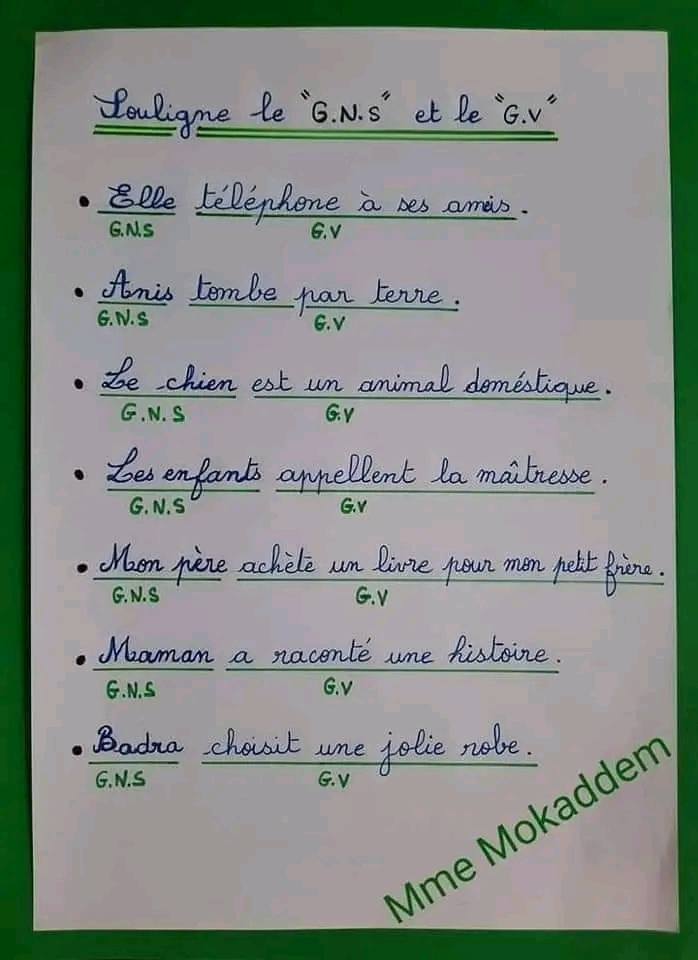 Souligne le "G.N.S" et le "G.V"
• Elle téléphone à ses amis.
G.N.S G.V
• Anis tombe par terre.
G.N.S G.V
• Le chien est un animal doméstique.
G.N.S G.V
• Les enfants appellent la maîtresse.
G.N.S G.V
• Mon père achète un livre pour mon petit frère.
G.N.S G.V
• Maman a raconté une histoire.
G.N.S G.V
• Badra choisit une jolie robe.
G.N.S G.V
Mme Mokaddem